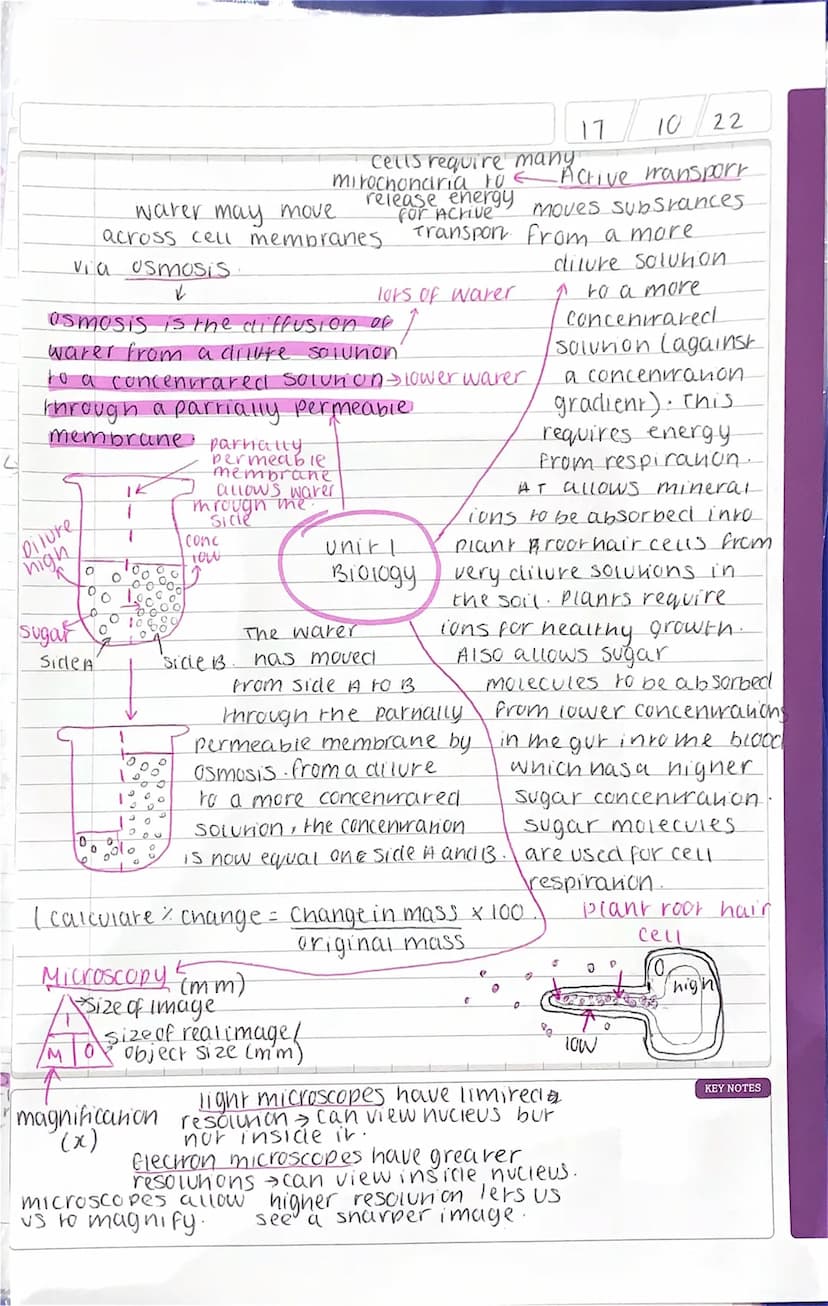 17 / 10 / 22
cells require many
mitochondria to ← Active transport
release energy
for Active
transport.
moves substances
from a more
dilute solution
to a more
concentrated
solution (against
a concentration
gradient). This
requires energy
from respiration.
AT allows mineral
ions to be absorbed into
plant root hair cells from
very dilute solutions in
the soil. Plants require
ions for healthy growth.
Also allows sugar
molecules to be absorbed
from lower concentrations
in the gut into the blood
which has a higher
sugar concentration.
sugar molecules
are used for cell
respiration.
water may move
across cell membranes
via osmosis.
lots of water
osmosis is the diffusion of
water from a dilute solution
to a concentrated solution → lower water
through a partially permeable
membrane.
partially
permeable
membrane
allows water
through the
side
Dilute
high
conc
low
sugar
side A
side B.
Unit 1
Biology
The water
has moved
from side A to B
through the partially
permeable membrane by
osmosis. from a dilute
to a more concentrated
solution, the concentration
is now equal one side A and B.
(calculate % change = change in mass × 100
original mass
plant root hair
cell
high
low
Microscopy (mm)
size of image
I
size of real image/
M O object size (mm)
magnification
(x)
KEY NOTES
light microscopes have limited
resolution → can view nucleus but
not inside it.
Electron microscopes have greater
resolutions → can view inside nucleus.
microscopes allow
us to magnify.
higher resolution lets us
see a sharper image.